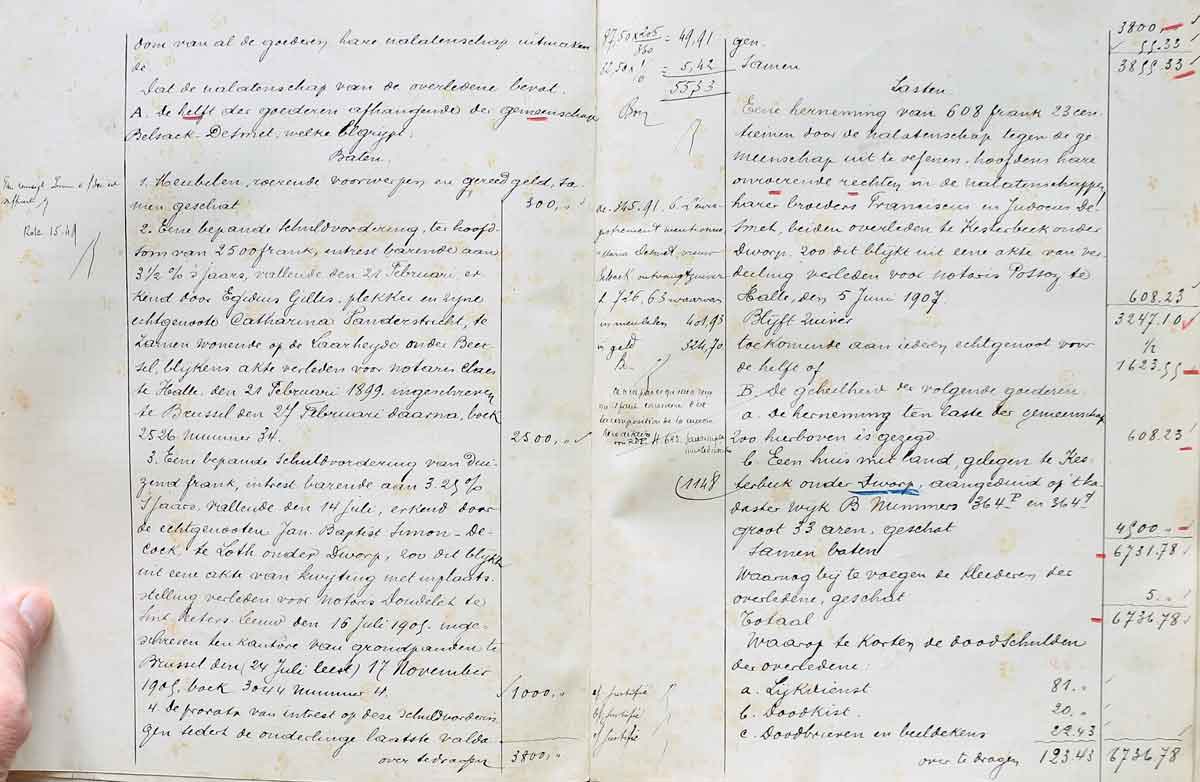 dom van al de goederen hare nalatenschap uitmaken
de.
Dat de nalatenschap van de overledene bevat.
A. de helft der goederen afhangende der gemeenschap
Belsack-Desmet, welke begrijpt.
Baten.
1. Meubelen, roerende voorwerpen en gereed geld, sa-
men geschat 300,,
2. Eene bepande schuldvordering, ter hoofd-
som van 2500 frank, intrest barende aan
3 1/2 % 's jaars, vallende den 21 Februari, er
kend door Egidius Gillis, plekker en zijne
echtgenoote Catharina Vanderstricht, te
zamen wonende op de Laarheyde onder Beer-
sel, blijkens akte verleden voor notaris Claes
te Halle, den 21 Februari 1849, ingeschreven
te Brussel den 27 Februari daarna, boek
2526 nummer 34. 2500,,
3. Eene bepande schuldvordering van dui-
zend frank, intrest barende aan 3.25 %
's jaars, vallende den 14 juli, erkend door
de echtgenooten Jan-Baptist Simon-De-
cock, te Loth onder Dworp, zoo dit blijkt
uit eene akte van kwijting met inplaats-
stelling verleden voor notaris Doudelet te
Sint Peters Leeuw den 15 Juli 1905, inge-
schreven ten kantore van grondpanden te
Brussel den (24 Juli leest) 17 november
1905, boek 3044 nummer 4. 1000,,
4. De prorata van intrest op deze schuldvorderin
gen sedert de onderlinge laatste valda-
over te dragen 3800,,
Rek 15.41
87.50 x 205
360
= 49.91
32.50 x
= 5.42
55.33
Bon
de 345.91
726,63 waarvan
in meubelen 401.93
in geld 324.70
1148
a/ justifié
b/ justifié
c/ justifié
3800,,
gen. 55.33
Samen 3855.33
Lasten.
Eene herneming van 608 frank 23 cen-
tiemen door de nalatenschap tegen de ge-
meenschap uit te oefenen, hoofdens hare
onroerende rechten in de nalatenschappen
harer broeders Franciscus en Judocus De-
smet, beiden overleden te Kesterbeek onder
Dworp, zoo dit blijkt uit eene akte van ver-
deeling verleden voor notaris Possoz te
Halle, den 5 Juni 1907. 608.23
Blijft zuiver 3247.10
toekomende aan iederen echtgenoot voor 1/2
de helft of 1623.55
B. De geheelheid der volgende goederen
a. De herneming ten laste der gemeenschap
zoo hierboven is gezegd 608.23
b. Een huis met land, gelegen te Kes-
terbeek onder Dworp, aangeduid op 't ka-
daster wijk B Nummers 364p en 364q
groot 33 aren, geschat 4500,,
Samen baten 6731.78
Waarnog bij te voegen de kleederen der
overledene, geschat 5.,,
Totaal 6736.78
Waarop te korten de doodschulden
der overledene:
a. Lijkdienst 81.,,
b. Doodkist. 20.,,
c. Doodbrieven en beeldekens 22.43
over te dragen 123.43 6736.78